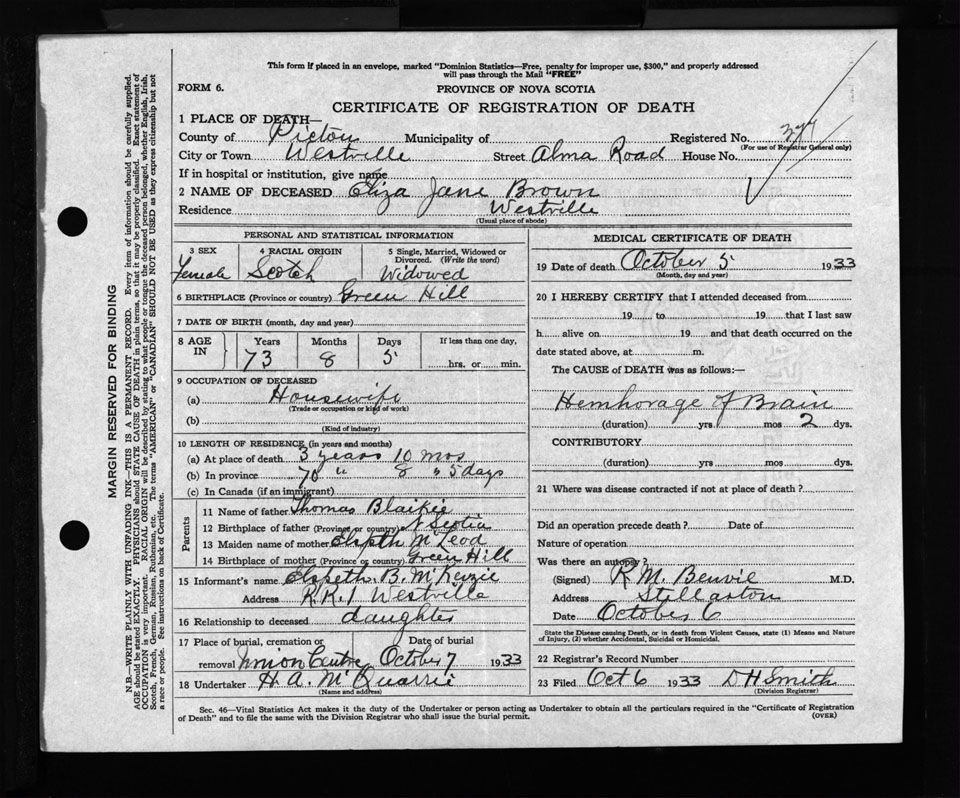 This form if placed in an envelope, marked "Dominion Statistics—Free, penalty for improper use, $300," and properly addressed
will pass through the Mail "FREE"
FORM 6.
PROVINCE OF NOVA SCOTIA
CERTIFICATE OF REGISTRATION OF DEATH
1 PLACE OF DEATH—
County of Pictou Municipality of Registered No.
(For use of Registrar General only)
City or Town Westville Street Alma Road House No.
If in hospital or institution, give name
2 NAME OF DECEASED Eliza Jane Brown
Residence Westville
(Usual place of abode)
PERSONAL AND STATISTICAL INFORMATION
3 SEX 4 RACIAL ORIGIN 5 Single, Married, Widowed or
Divorced. (Write the word)
Female Scotch Widowed
6 BIRTHPLACE (Province or country) Green Hill
7 DATE OF BIRTH (month, day and year)
8 AGE IN Years Months Days If less than one day,
73 8 5 hrs. or min.
9 OCCUPATION OF DECEASED
(a) Housewife
(Trade or occupation or kind of work)
(b)
(Kind of industry)
10 LENGTH OF RESIDENCE (in years and months)
(a) At place of death 3 years 10 mos
(b) In province 70 " 8 " 5 days
(c) In Canada (if an immigrant)
Parents
11 Name of father Thomas Blaikie
12 Birthplace of father (Province or country) N Scotia
13 Maiden name of mother Elspeth McLeod
14 Birthplace of mother (Province or country) Green Hill
15 Informant's name Elspeth. B. McKenzie
Address R.R. 1 Westville
16 Relationship to deceased daughter
17 Place of burial, cremation or Date of burial
removal Union Centre October 7 1933
18 Undertaker H. A. McQuarrie
(Name and address)
MEDICAL CERTIFICATE OF DEATH
19 Date of death October 5 1933
(Month, day and year)
20 I HEREBY CERTIFY that I attended deceased from
19 to 19 that I last saw
h alive on 19 and that death occurred on the
date stated above, at m.
The CAUSE of DEATH was as follows:—
Hemhorage of Brain
(duration) yrs mos 2 dys.
CONTRIBUTORY
(duration) yrs. mos. dys.
21 Where was disease contracted if not at place of death?
Did an operation precede death? Date of
Nature of operation
Was there an autopsy?
(Signed) R M. Benvie M.D.
Address Stellarton
Date October 6
State the Disease causing Death, or in death from Violent Causes, state (1) Means and Nature
of Injury, (2) whether Accidental, Suicidal or Homicidal.
22 Registrar's Record Number
23 Filed Oct 6 1933 D H Smith
(Division Registrar)
Sec. 46—Vital Statistics Act makes it the duty of the Undertaker or person acting as Undertaker to obtain all the particulars required in the "Certificate of Registration
of Death" and to file the same with the Division Registrar who shall issue the burial permit.
(OVER)
MARGIN RESERVED FOR BINDING
N.B.—WRITE PLAINLY WITH UNFADING INK—THIS IS A PERMANENT RECORD. Every item of information should be carefully supplied.
AGE should be stated EXACTLY. PHYSICIANS should STATE CAUSE OF DEATH in plain terms, so that it may be properly classified. Exact statement of
OCCUPATION is very important. RACIAL ORIGIN will be described by stating to what people or tongue the deceased person belonged, whether English, Irish,
Scotch, French, German, Russian, Ruthenian, etc. The terms "AMERICAN" or "CANADIAN" SHOULD NOT BE USED as they express citizenship but not
a race or people. See instructions on back of Certificate.